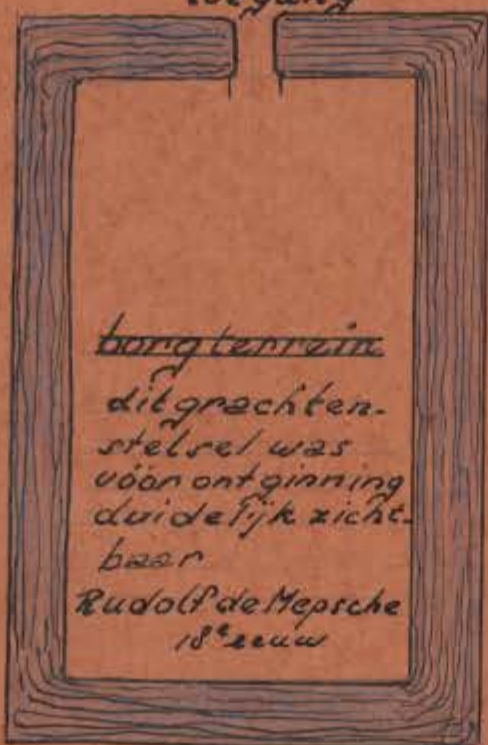 toegang
borgterrein
dit grachten-
stelsel was
vóór ontginning
duidelijk zicht-
baar
Rudolf de Mepsche
18e eeuw